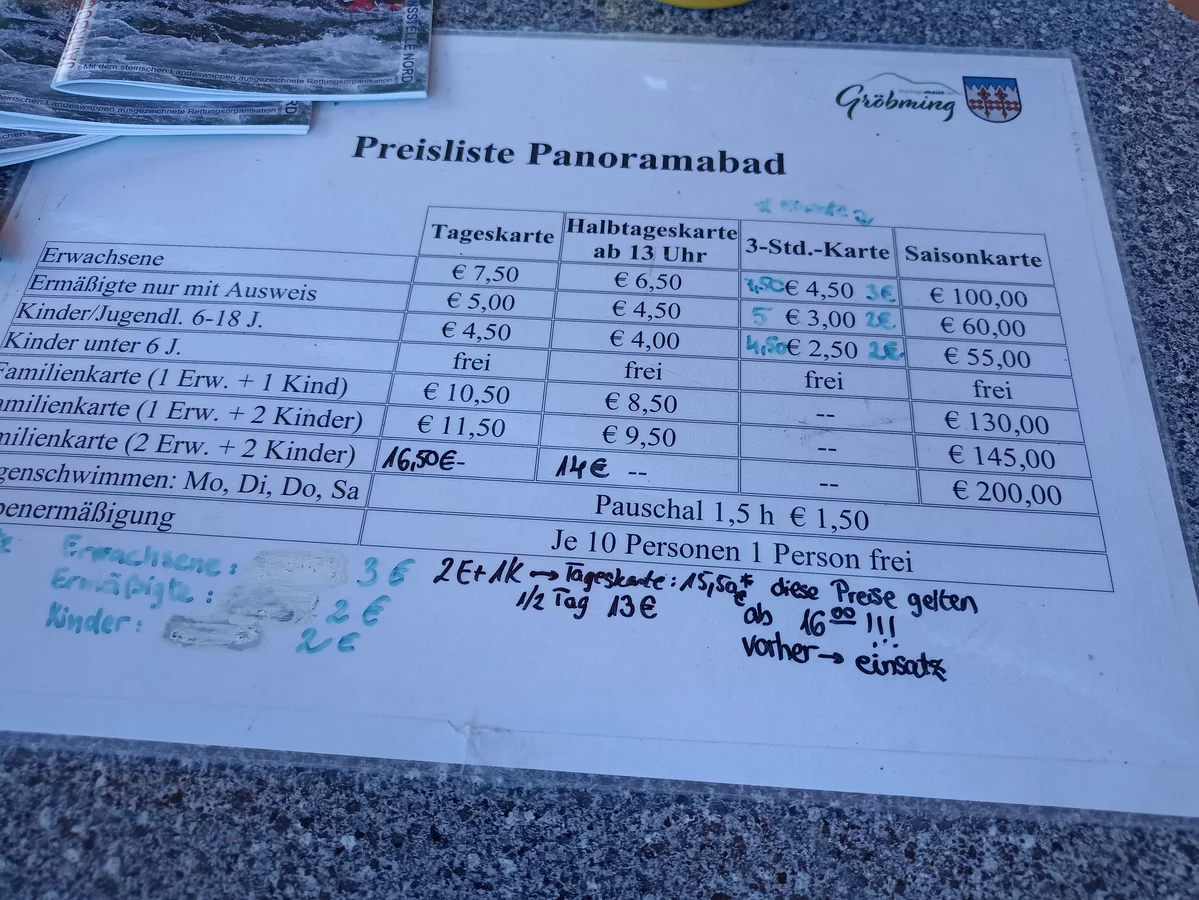 SSTELLE NORD
Mit dem steirischen Landeswappen ausgezeichnete Rettungsorganisation
Landeswappen ausgezeichnete Rettungsorganisation
Gröbming
Preisliste Panoramabad
Tageskarte Halbtageskarte ab 13 Uhr 3-Std.-Karte Saisonkarte
Erwachsene € 7,50 € 6,50 7,50 € 4,50 3€ € 100,00
Ermäßigte nur mit Ausweis € 5,00 € 4,50 5 € 3,00 2€ € 60,00
Kinder/Jugendl. 6-18 J. € 4,50 € 4,00 4,50 € 2,50 2€ € 55,00
Kinder unter 6 J. frei frei frei frei
Familienkarte (1 Erw. + 1 Kind) € 10,50 € 8,50 -- € 130,00
amilienkarte (1 Erw. + 2 Kinder) € 11,50 € 9,50 -- € 145,00
milienkarte (2 Erw. + 2 Kinder) 16,50€- 14€ -- -- € 200,00
genschwimmen: Mo, Di, Do, Sa Pauschal 1,5 h € 1,50
penermäßigung Je 10 Personen 1 Person frei
Erwachsene: 3€
Ermäßigte: 2€
Kinder: 2€
2E+1K → Tageskarte: 15,50€
1/2 Tag 13€
* diese Preise gelten
ab 16 00 !!!
vorher → einsatz